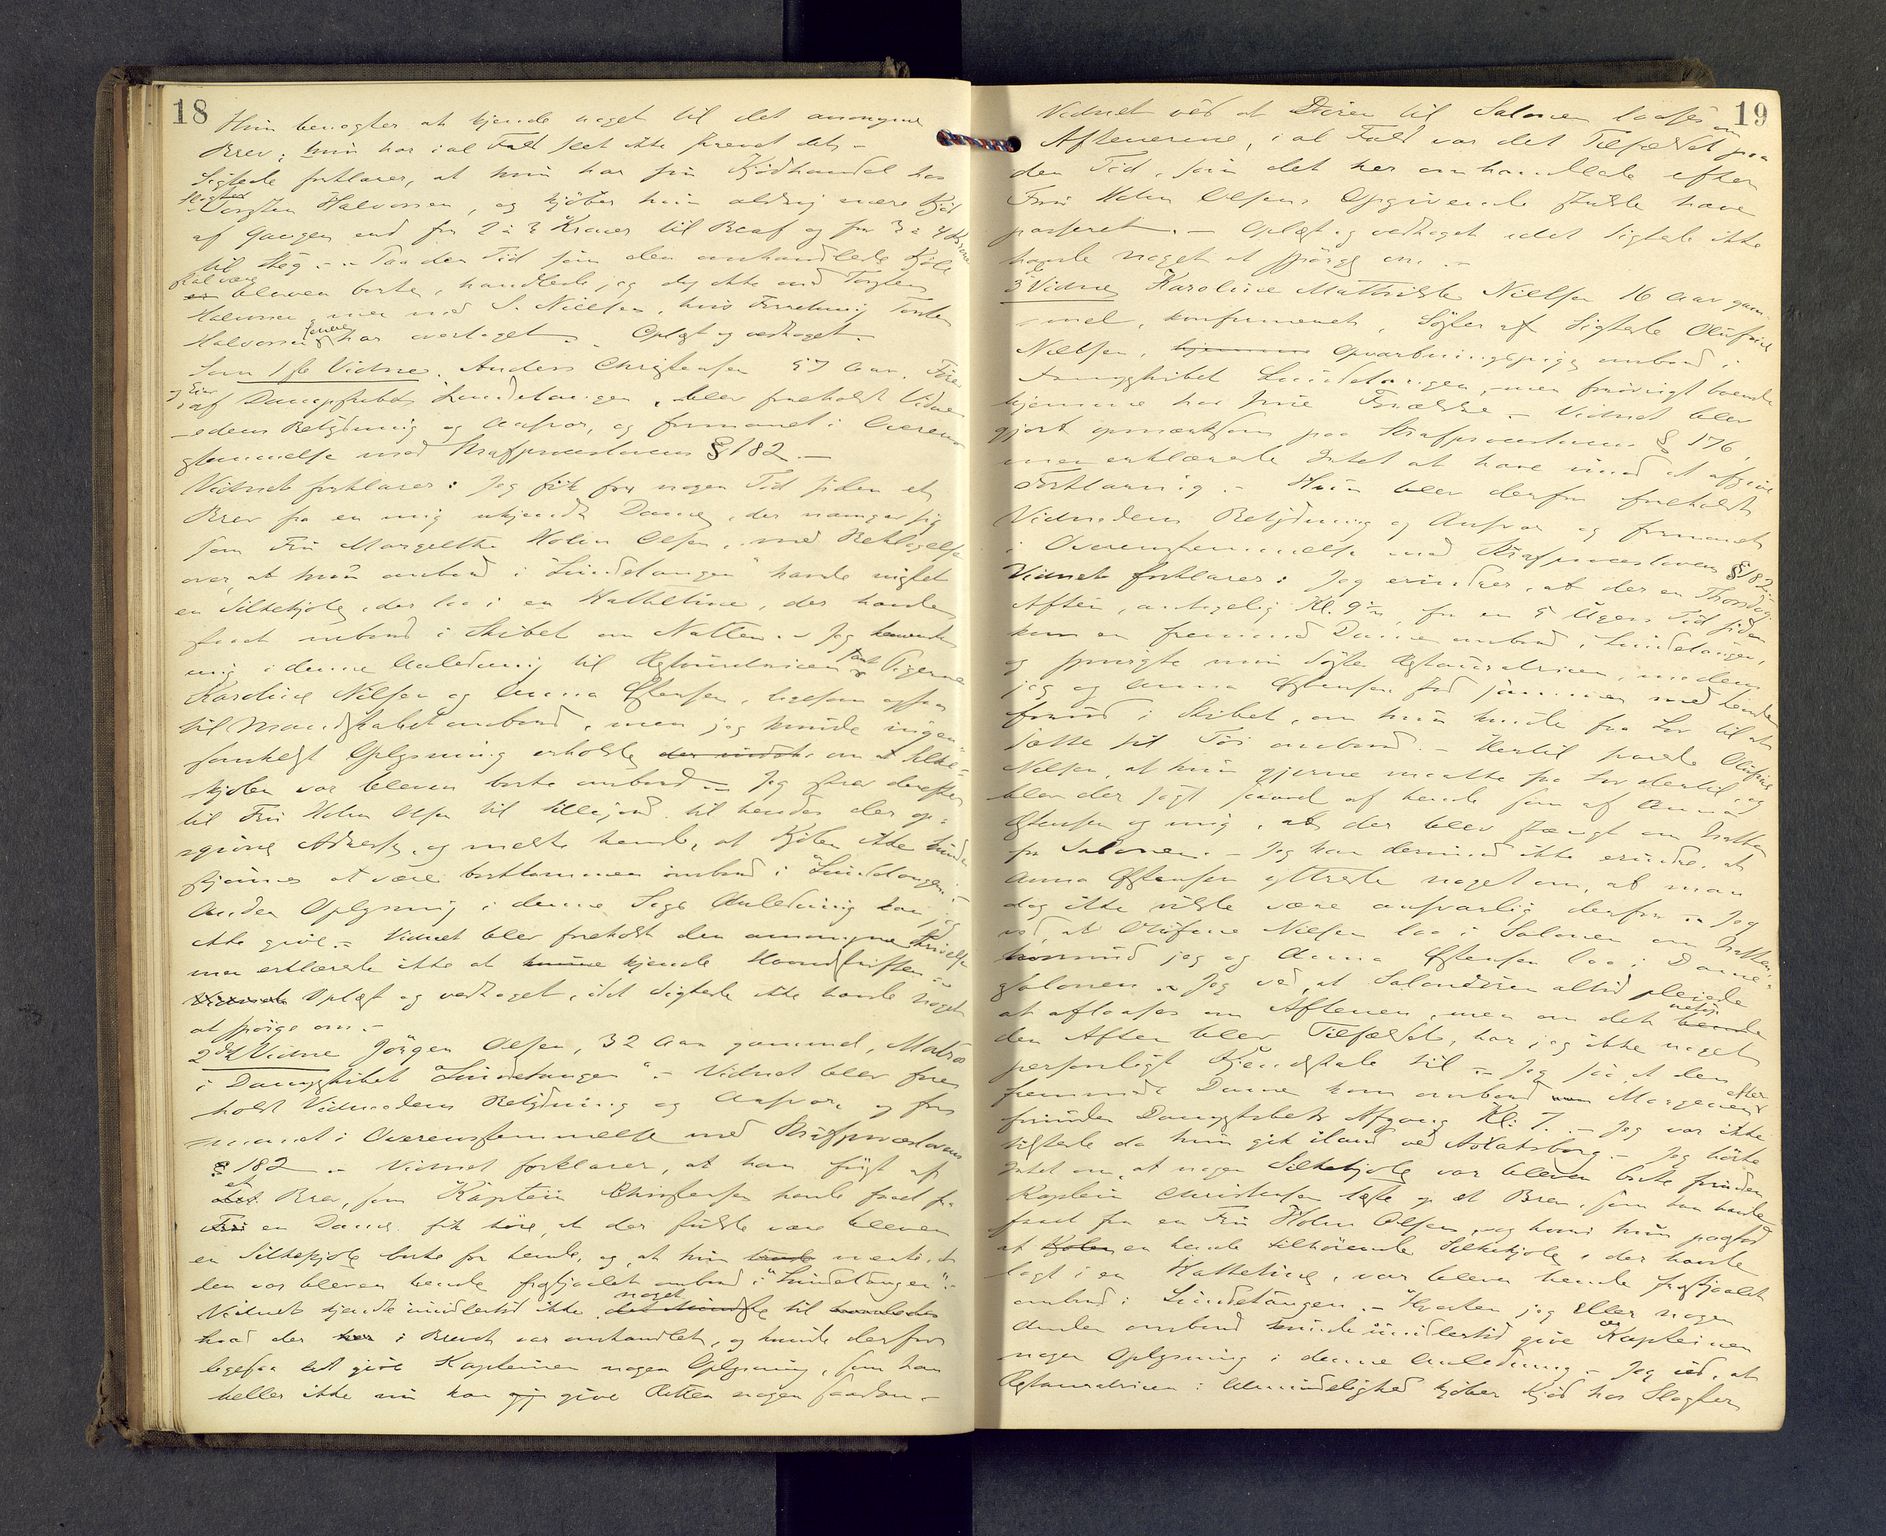 18
Hun benegter at kjende noget til det anonyme
Brev; hun har i al Fald slet ikke skrevet det. –
Sigtede forklarer, at hun har sin Kjødhandel hos
Slagter Torsten Halvorsen, og kjøber hun aldrig mere Kjød
af Gangen end for 2 à 3 Kroner til Beaf og for 3 à 4 Kroner
til Steg. – Paa den Tid som den omhandlede Kjole
skal være bleven borte, handlede jeg dog ikke med Torsten
Halvorsen men med S. Nielsen, hvis Forretning Torsten
Halvorsen senere har overtaget. – Oplæst og vedtaget.
Som 1ste Vidne, Anders Christensen 57 Aar, Fører
og Eier af Dampskibet Lindetangen, blev foreholdt Vidne-
edens Betydning og Ansvar, og formanet i Overens-
stemmelse med Straffproceslovens § 182. –
Vidnet forklarer: Jeg fik for nogen Tid siden et
Brev fra en mig ukjendt Dame, der navngav sig
som Fru Margrethe Holm Olsen, med Beklagelse
over, at hun ombord i "Lindetangen" havde mistet
en Silkekjole, der laa i en Hattetine, der havde
staaet ombord i Skibet om Natten. – Jeg henvendte
mig i denne Anledning til Restauratricen samt Pigerne
Karoline Nilsen og Anna Estensen, ligesom ogsaa
til Mandskabet ombord, men jeg kunde ingen-
somhelst Oplysning erholde om at Silke-
kjolen var bleven borte ombord. – Jeg skrev derefter
til Fru Holm Olsen til Lillesand til hendes der op-
givne Adresse, og meldte hende, at Kjolen ikke kunde
skjønnes at være bortkommen ombord i "Lindetangen". –
Anden Oplysning i denne Sags Anledning kan jeg
ikke give. – Vidnet blev foreholdt den anonyme Skrivelse
men erklærede ikke at kjende Haandskriften. –
Oplæst og vedtaget, idet Sigtede ikke havde noget
at spørge om. –
2det Vidne Jørgen Olsen, 32 Aar gammel, Matros
i Dampskibet "Lindetangen". – Vidnet blev fore-
holdt Vidneedens Betydning og Ansvar, og for-
manet i Overensstemmelse med Straffproceslovens
§ 182. – Vidnet forklarer, at han fulgt af
et Brev, som Kaptein Christensen havde faaet fra
en Dame fik høre, at der skulde være bleven
en Silkekjole borte for hende, og at hun mente, at
den var bleven hende frastjaalet ombord i "Lindetangen". –
Vidnet kjendte imidlertid ikke noget til
hvad der i Brevet var omhandlet, og kunde derfor
ligesaa lidt give Kapteinen nogen Oplysning, som han
heller ikke nu kan give Retten nogen saadan. –
19
Vidnet ved at Døren til Salonen laases om
Aftenerne, i al Fald var det Tilfældet paa
den Tid, som det her omhandlede efter
Fru Holm Olsens Opgivende skulde have
passeret. – Oplæst og vedtaget idet Sigtede ikke
havde noget at spørge om. –
3die Vidne Karoline Mathilde Nielsen 16 Aar gam-
mel, konfirmeret, Søster af Sigtede Olufine
Nielsen, Opvartningspige ombord i
Dampskibet Lindetangen, men forøvrigt boende
hjemme hos sine Forældre. – Vidnet blev
gjort opmærksom paa Straffproceslovens § 176,
men erklærede Intet at have imod at afgive
Forklaring. – Hun blev derfor foreholdt
Vidneedens Betydning og Ansvar og formanet
i Overensstemmelse med Straffproceslovens § 182.
Vidnet forklarer: Jeg erindrer, at der en Thorsdag
Aften, antagelig Kl. 9½, for en 5 Ugers Tid siden
kom en fremmed Dame ombord i Lindetangen,
og spurgte min Søster Restauratricen, medens
jeg og Anna Estensen stod sammen med hende
forud i Skibet, om hun kunde faa Lov til at
sætte sit Tøi ombord. – Hertil svarede Olufine
Nilsen, at hun gjerne maatte faa Lov dertil, og
blev der sagt saavel af hende som af Anna
Estensen og mig, at der blev stængt om Natten
for Salonen. – Jeg kan derimod ikke erindre, at
Anna Estensen yttrede noget om, at man
dog ikke vilde være ansvarlig derfor. – Jeg
ved, at Olufine Nielsen laa i Salonen om Natten,
hvorimod jeg og Anna Estensen laa i Dame-
salonen. – Jeg ved, at Salondøren altid pleiede
at aflaases om Aftenen, men om det netop
den Aften blev Tilfældet, har jeg ikke noget
personligt Kjendskab til. – Jeg saa, at den
fremmede Dame kom ombord Morgenen efter
forinden Dampskibets Afgang Kl. 7. – Jeg var ikke
tilstede da hun gik iland ved Aslaksborg. – Jeg hørte
Intet om, at nogen Silkekjole var bleven borte forinden
Kaptein Christensen læste op et Brev, som han havde
faaet fra en Fru Holm Olsen, og hvori hun paastod
at en hende tilhørende Silkekjole, der havde
ligget i en Hattetine, var bleven hende frastjaalet
ombord i Lindetangen. – Hverken jeg eller nogen
anden ombord kunde imidlertid give Kapteinen
nogen Oplysning i denne Anledning. – Jeg ved, at
Restauratricen i Almindelighed kjøber Kjød hos Slagter